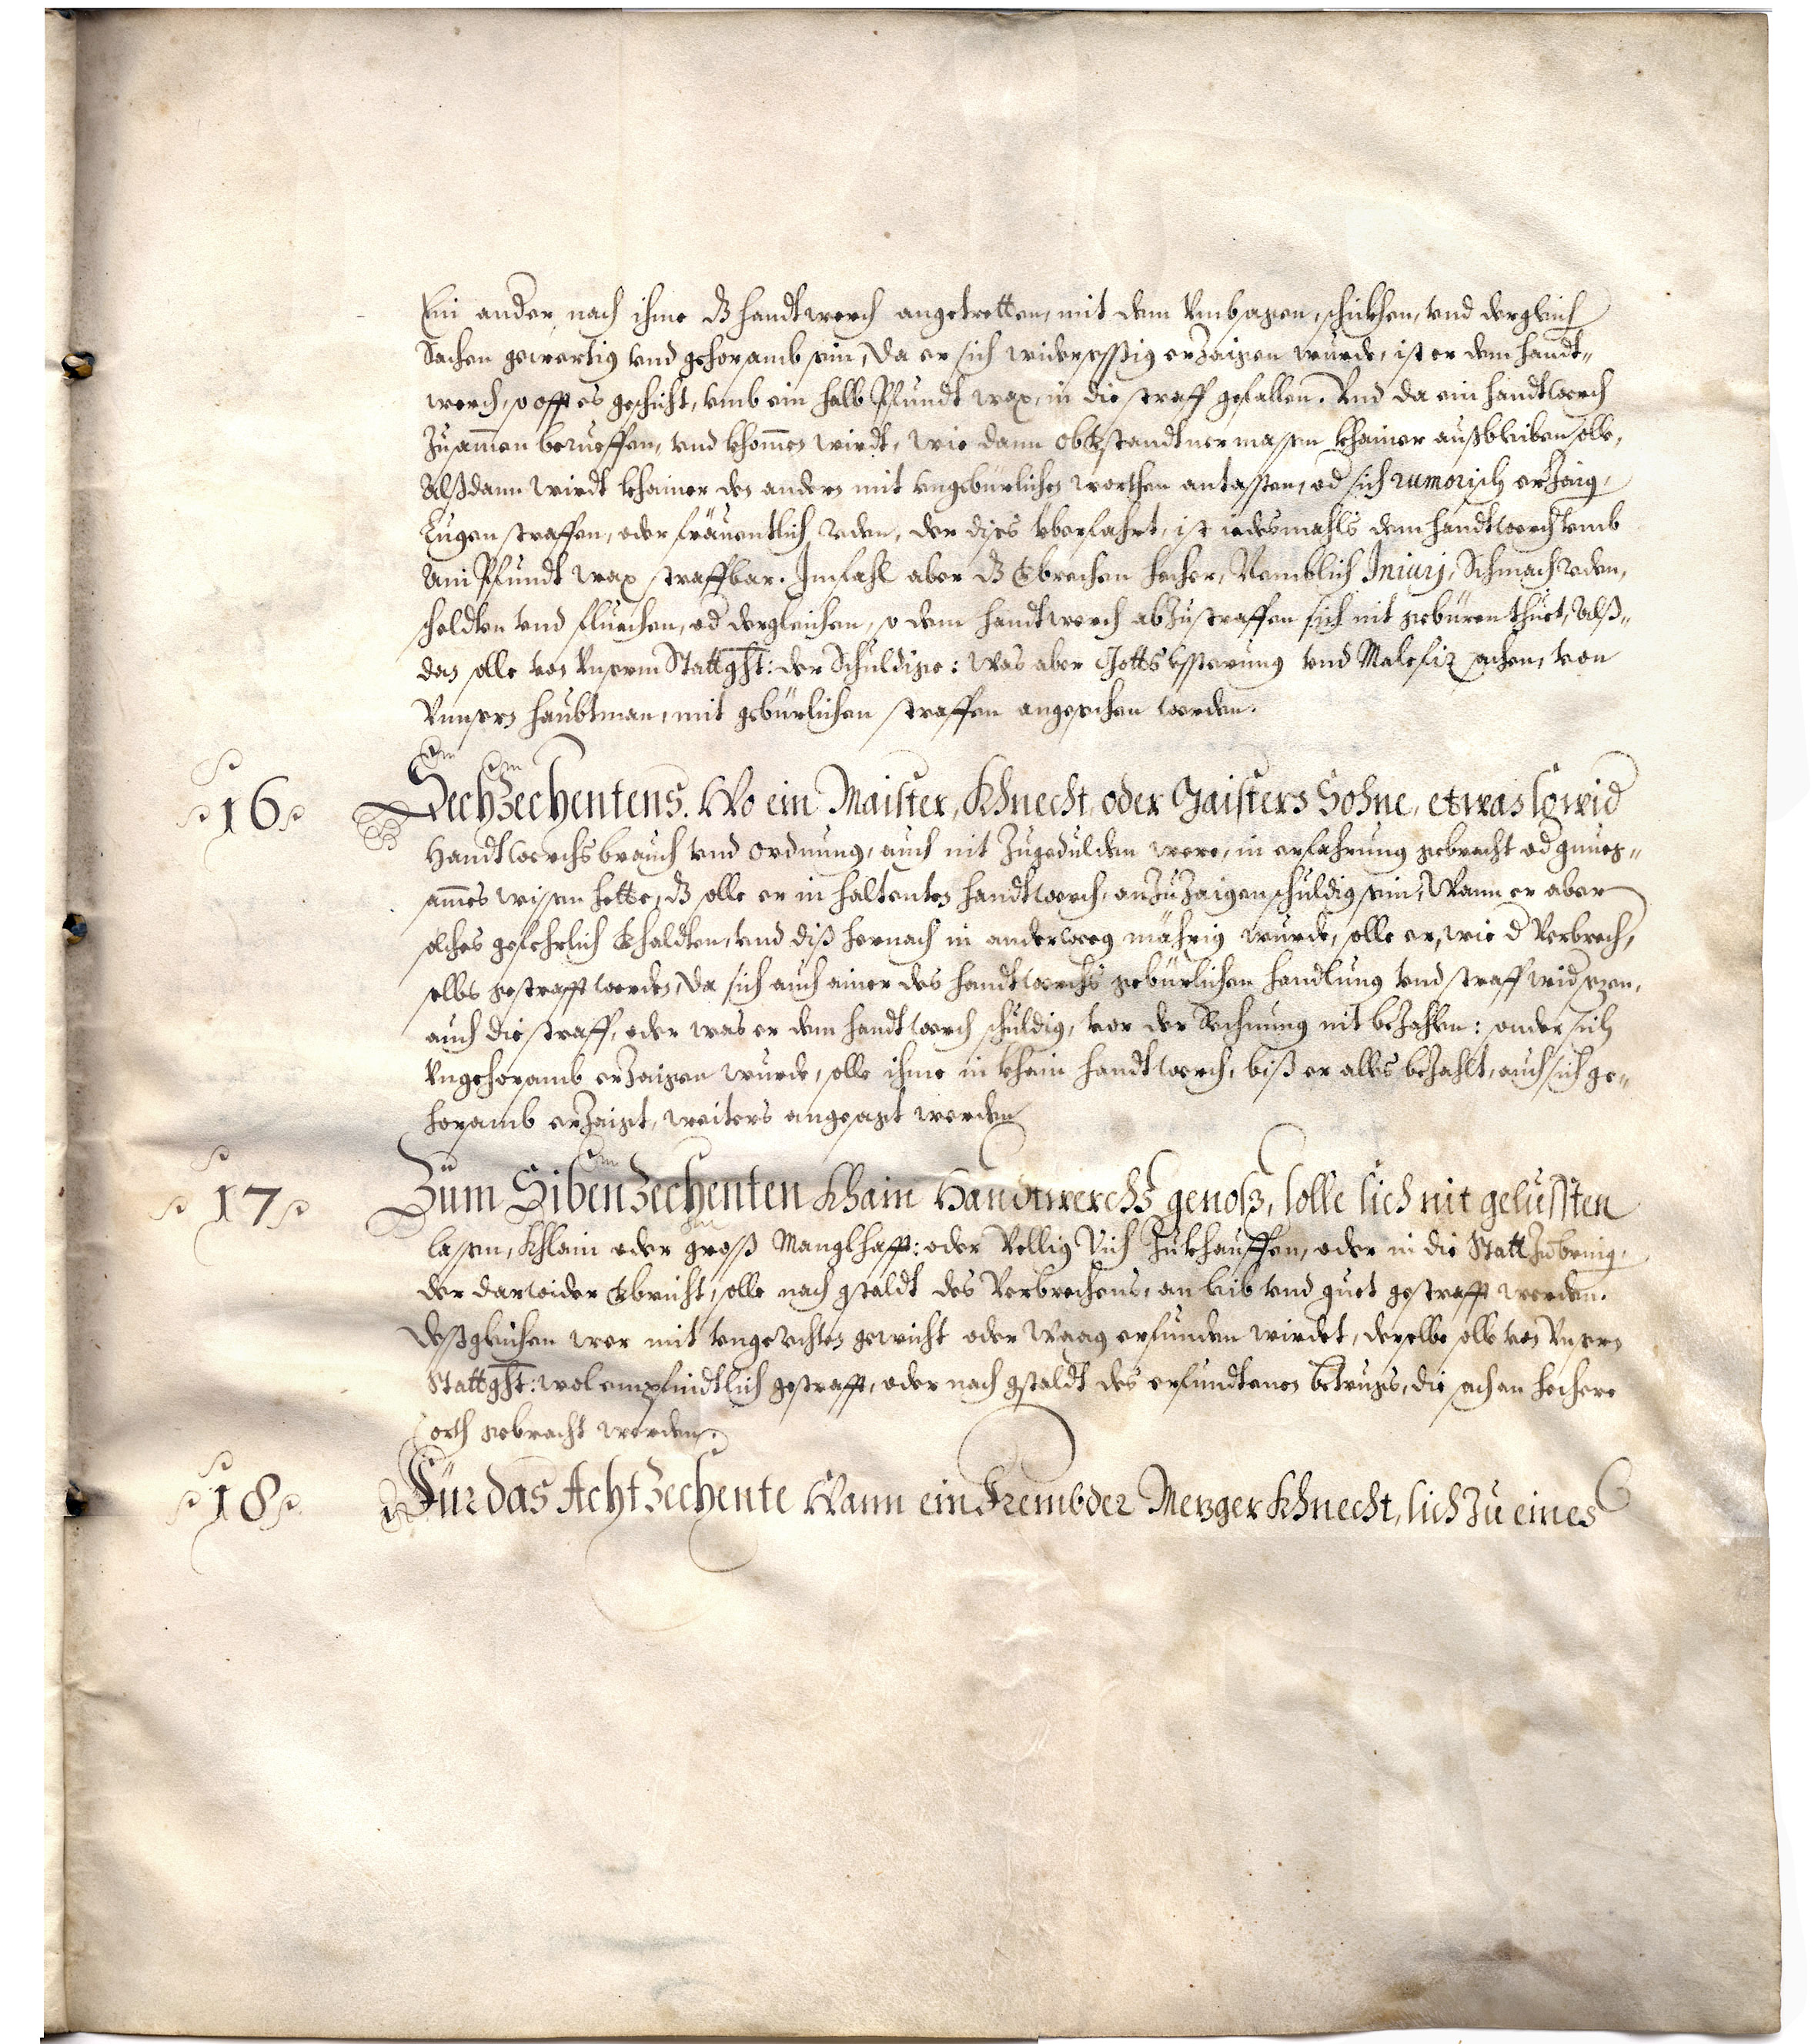 Ein ander nach ihme dz handtwerch angetretten, mit dem Vmbsagen, schickhen, vnd dergleich
Sachen gewertig vnd gehorsamb sein, Da er sich widersessig erzaigen wurde, ist er dem handt„
werch, so offt es geschicht, vmb ein halb Pfundt wax, in die straff gefallen. Vnd da ein handtwerch
zusamen beruoffen, vnd khomen wirdt, wie dann obverstandtner massen khainer außbleiben solle,
Alßdann wirdt khainer den andern mit vngebürlichen worthen antassten, od sich rumorisch erzaig,
Lugen straffen, oder fräuentlich reden, der dises vberfahrt, ist iedesmahls dem handtwerch vmb
Ain Pfundt wax straffbar. Im fahl aber dz Verbrechen hecher, Nemblich Iniurj, Schmachreden,
schelden vnd fluechen, od dergleichen, so dem handtwerch abzustraffen sich nit gebüren thuet, Alß„
dan solle von Vnserm Stattght: der Schuldige: Was aber Gottslessterung vnd Malefiz sachen, von
Vnnserm haubtman, mit gebürlichen straffen angesechen werden.
16 Sechzechentens. Wo ein Maister, Khnecht, oder Maisters Sohne, etwas so wid
Handtwerchsbrauch vnd ordnung, auch nit zugedulden were, in erfahrung gebracht od gnueg„
sames wissen hette, dz solle er in haltenten handtwerch, anzuzaigen schuldig sein, Wann er aber
solches gefehrlich verhaldten, vnd diß hernach in anderweeg mährig wurde, solle er, wie d Verbrech,
selbs gestrafft werden, Da sich auch ainer des handtwerchs gebürlichen handlung vnd straff widsezen,
auch die straff, oder was er dem handtwerch schuldig, vor der Rechnung nit bezahlen: sonder sich
Vngehorsamb erzaigen wurde, solle ihme in khain handtwerch, biß er alles bezahlt, auch sich ge„
horsamb erzaigt, weiters angesagt werden
17 Zum Sibenzechenten Khain Handtwerchs genoß, solle sich nit gelussten
lassen, Khlain oder groß Manglhafft: oder Vellig Vich zukhauffen, oder in die Statt zubring,
der darwider verbricht, solle nach gstaldt des Verbrechens, an leib vnd guet gestrafft werden.
Deßgleichen wer mit vngerechten gewicht oder Waag erfunden wirdet, derselbe solle von Vnsern
Stattght: wol empfindtlich gestrafft, oder nach gstaldt des erfundtenen betrugs, die sach an hechere
orth gebracht werden.
18 Für das Achtzechente Wann ein Frembder Mezger Khnecht, sich zu eines